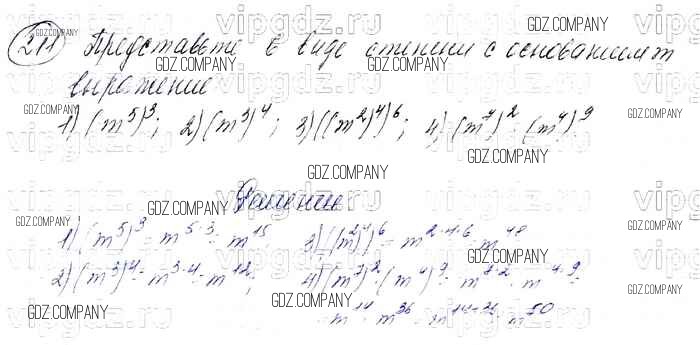 211 Представьте в виде степени с основанием m
выражение
1) (m^5)^3; 2) (m^3)^4; 3) ((m^2)^4)^6; 4) (m^7)^2 · (m^4)^9
Решение
1) (m^5)^3 = m^{5·3} = m^{15} 3) ((m^2)^4)^6 = m^{2·4·6} = m^{48}
2) (m^3)^4 = m^{3·4} = m^{12}; 4) (m^7)^2 · (m^4)^9 = m^{7·2} · m^{4·9} =
= m^{14} · m^{36} = m^{14+36} = m^{50}
GDZ.COMPANY
vipgdz.ru